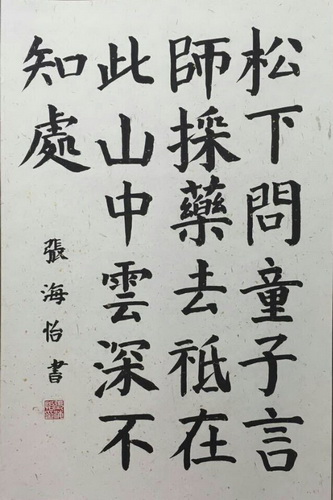 松下問童子言
師採藥去祗在
此山中雲深不
知處
張海怡書